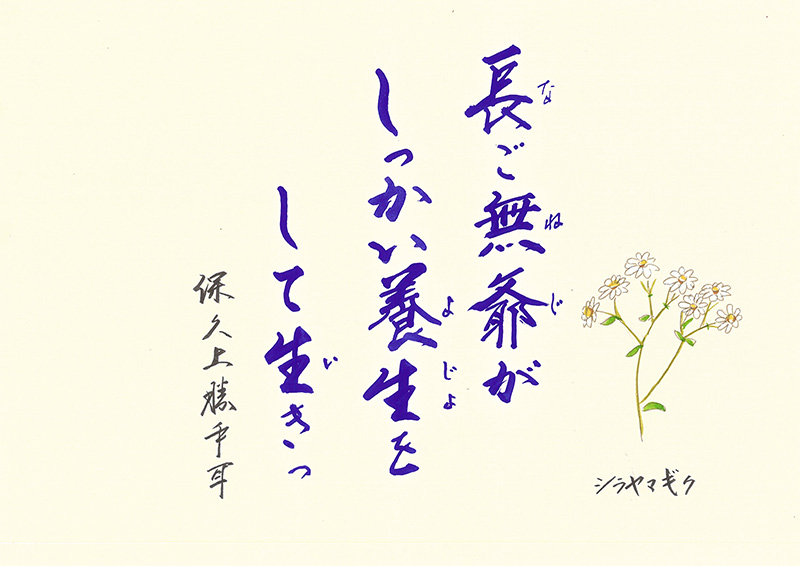 長ご無爺が
な ね じ
しっかい養生を
よ じよ
して生きっ
い
保久上勝手耳
シラヤマギク